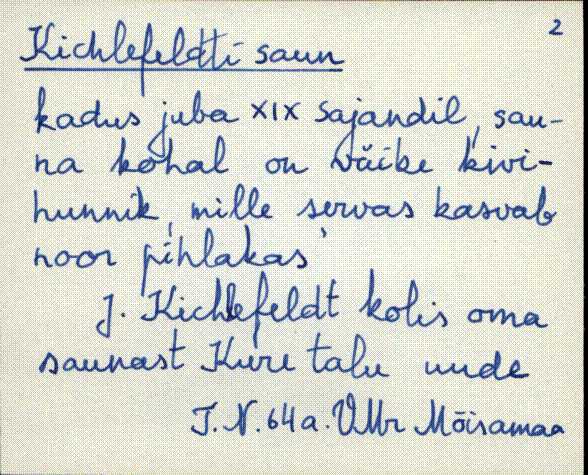 2
Kichlefeldti saun
kadus juba XIX sajandil, sau-
na kohal on väike kivi-
hunnik, mille servas kasvab
noor pihlakas
J. Kichlefeldt kolis oma
saunast Kure talu uude
J. N. 64 a. VMr Mõisamaa